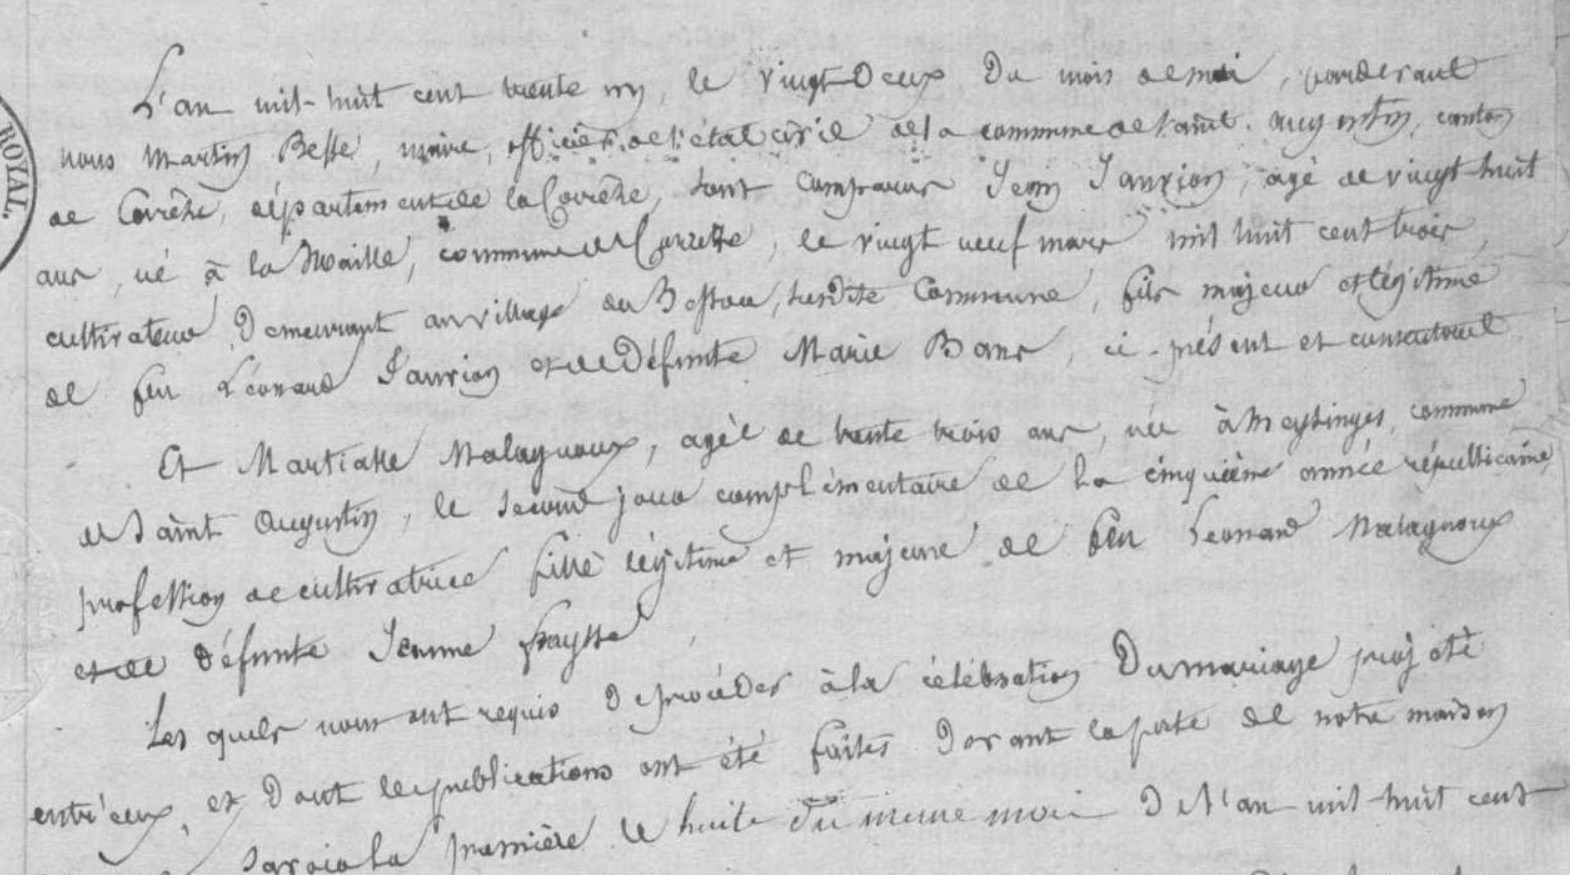 ROYAL.
L'an mil-huit cent trente un, le vingt Deux Du mois de mai, pardevant
nous Martin Besse, maire, officier de l'état civil de la commune de Saint. Augustin, canton
de Corrèze, département de la Corrèze, sont comparus Jean Jauvion, agé de vingt-huit
ans, né à la Maille, commune de Corrèze, le vingt neuf mars mil huit cent trois,
cultivateur, Demeurant au village du, susdite Commune, fils majeur et légitime
de feu Léonard Jauvion et de Défunte Marie Bans, ci-présent et consentant
Et Martialle Malagnoux, agée de trente trois ans, née à Meysinges, commune
de Saint Augustin, le second jour complémentaire de la cinquième année républicaine,
profession de cultivatrice fille légitime et majeure de feu Leonard Malagnoux
et de défunte Jeanne fraysse
Les quels nous ont requis De procéder à la célébration Du mariage projeté
entr'eux, et Dont les publications ont été faites Devant la porte de notre maison
savoir la première le huit Du meme mois De l'an mil-huit cent